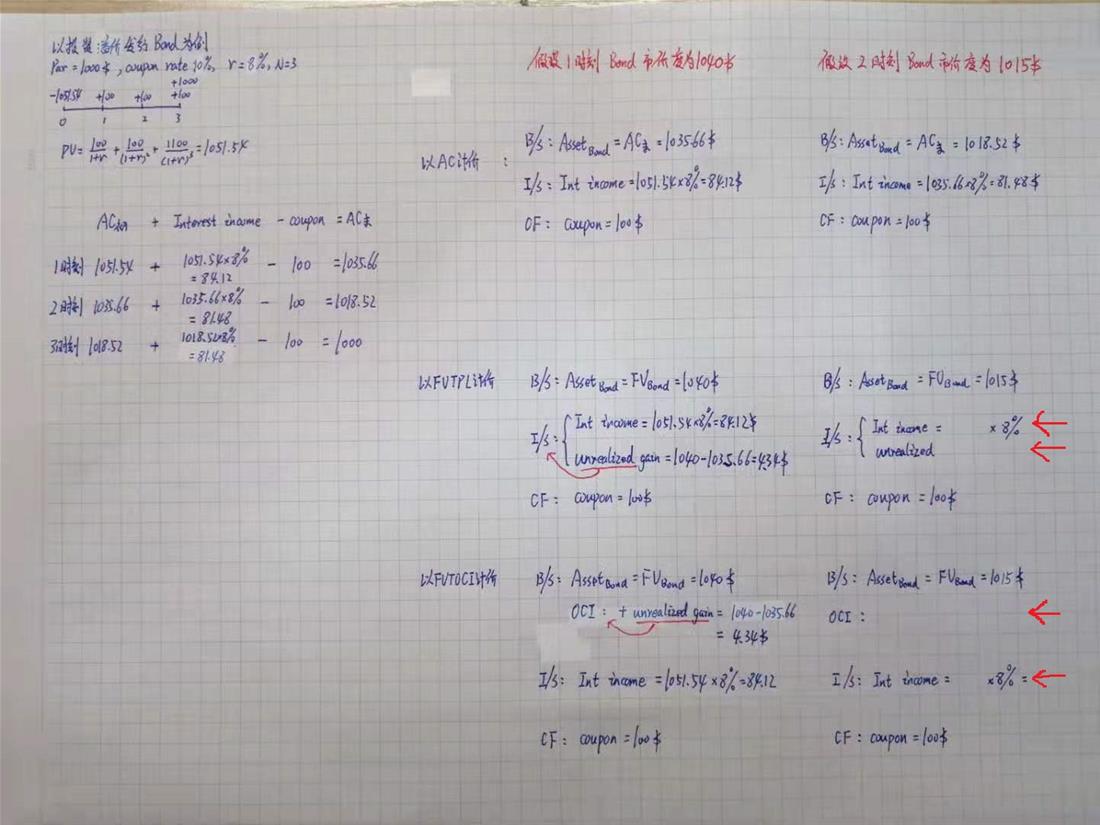 以投资溢价发行Bond为例
Par = 1000$, coupon rate 10%, r = 8%, N=3
+1000
-1051.54 +100 +100 +100
0 1 2 3
PV = 100/1+r + 100/(1+r)² + 1100/(1+r)³ = 1051.54
AC初 + Interest income - coupon = AC末
1时刻 1051.54 + 1051.54×8% = 84.12 - 100 = 1035.66
2时刻 1035.66 + 1035.66×8% = 81.48 - 100 = 1018.52
3时刻 1018.52 + 1018.52×8% = 81.48 - 100 = 1000
假设1时刻 Bond 市价变为1040$
以AC计价:
B/S: Asset Bond = AC末 = 1035.66$
I/S: Int income = 1051.54×8% = 84.12$
CF: coupon = 100$
以FVTPL计价
B/S: Asset Bond = FV Bond = 1040$
I/S: { Int income = 1051.54×8% = 84.12$
unrealized gain = 1040-1035.66 = 4.34$
CF: coupon = 100$
以FVTOCI计价
B/S: Asset Bond = FV Bond = 1040$
OCI: + unrealized gain = 1040-1035.66
= 4.34$
I/S: Int income = 1051.54×8% = 84.12
CF: coupon = 100$
假设2时刻 Bond 市价变为1015$
B/S: Asset Bond = AC末 = 1018.52$
I/S: Int income = 1035.66×8% = 81.48$
CF: coupon = 100$
B/S: Asset Bond = FV Bond = 1015$
I/S: { Int income = ×8%
unrealized
CF: coupon = 100$
B/S: Asset Bond = FV Bond = 1015$
OCI:
I/S: Int income = ×8% =
CF: coupon = 100$